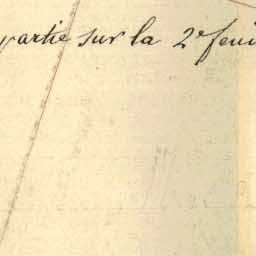 partie sur la 2e feui